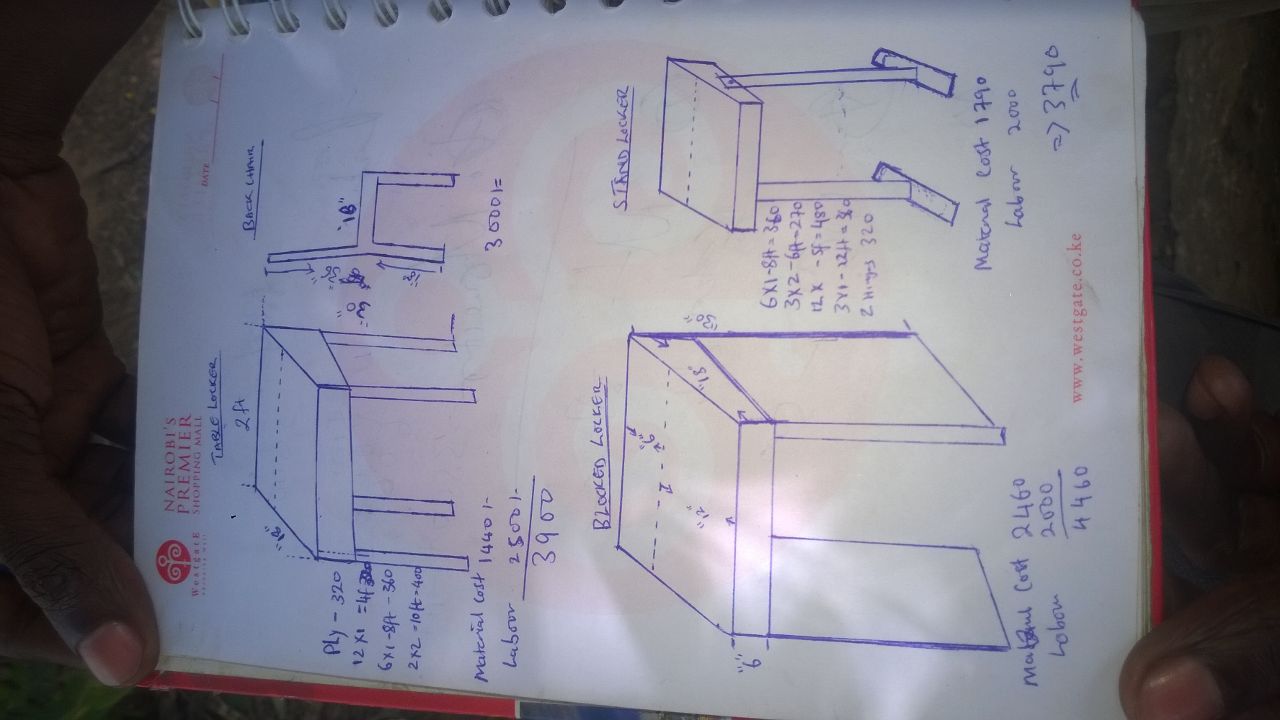 Westgate
NAIROBI'S
PREMIER
SHOPPING MALL
DATE
TABLE LOCKER
2 ft
"18"
Ply - 320
6x1 - 8ft - 360
2x2 = 10ft = 400
Material cost 1440/-
Labour 2500/-
3900
BACK CHAIR
"18"
3000/=
BLOCKED LOCKER
"6"
"12"
"18"
"30"
"6"
Cost 2460
Labour 2000
4460
STAND LOCKER
6x1 - 8ft = 360
3x2 - 6ft = 270
12x - 5f = 480
3x1 - 12ft = 360
2 Hinges 320
Material Cost 1790
Labour 2000
=> 3790
www.westgate.co.ke